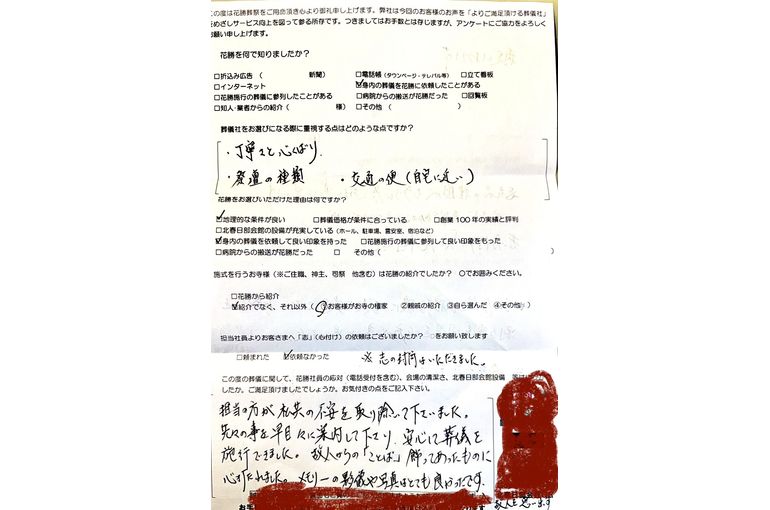 この度は花勝葬祭をご用命頂き心より御礼申し上げます。弊社は今回のお客様のお声を「よりご満足頂ける葬儀社」
をめざしサービス向上を図って参る所存です。つきましてはお手数とは存じますが、アンケートにご協力をよろしく
お願い申し上げます。
花勝を何で知りましたか？
□折込み広告（　　　　新聞）　□電話帳（タウンページ・テレパル等）　□立て看板
□インターネット　☑身内の葬儀を花勝に依頼したことがある
□花勝施行の葬儀に参列したことがある　□病院からの搬送が花勝だった　□回覧板
□知人・業者からの紹介（　　　　様）　□その他（　　　　）
葬儀社をお選びになる際に重視する点はどのような点ですか？
・丁寧さと心くばり
・祭壇の種類　・交通の便（自宅に近い）
花勝をお選びいただけた理由は何ですか？
☑地理的な条件が良い　□葬儀価格が条件に合っている　□創業100年の実績と評判
□北春日部会館の設備が充実している（ホール、駐車場、霊安室、宿泊など）
☑身内の葬儀を依頼して良い印象を持った　□花勝施行の葬儀に参列して良い印象をもった
□病院からの搬送が花勝だった　□その他（　　　　）
施式を行うお寺様（※ご住職、神主、司祭　他含む）は花勝の紹介でしたか？　〇でお囲みください。
□花勝から紹介
☑紹介でなく、それ以外（①お客様がお寺の檀家　②親戚の紹介　③自ら選んだ　④その他）
担当社員よりお客さまへ「志」（心付け）の依頼はございましたか？　〇をお願い致します
□頼まれた　☑依頼なかった　※志の封筒はいただきました。
この度の葬儀に関して、花勝社員の応対（電話受付を含む）、会場の清潔さ、北春日部会館設備　等は
したか。ご満足頂けましたでしょうか。お気付きの点をご記入下さい。
担当の方が私共の不安を取り除いて下さいました。
先々の事を早目々に案内して下さり、安心して葬儀を
施行できました。故人からの「ことば」飾ってあったものに
心打たれました。メモリーの影像や写真はとても良かったです。
故人を思います